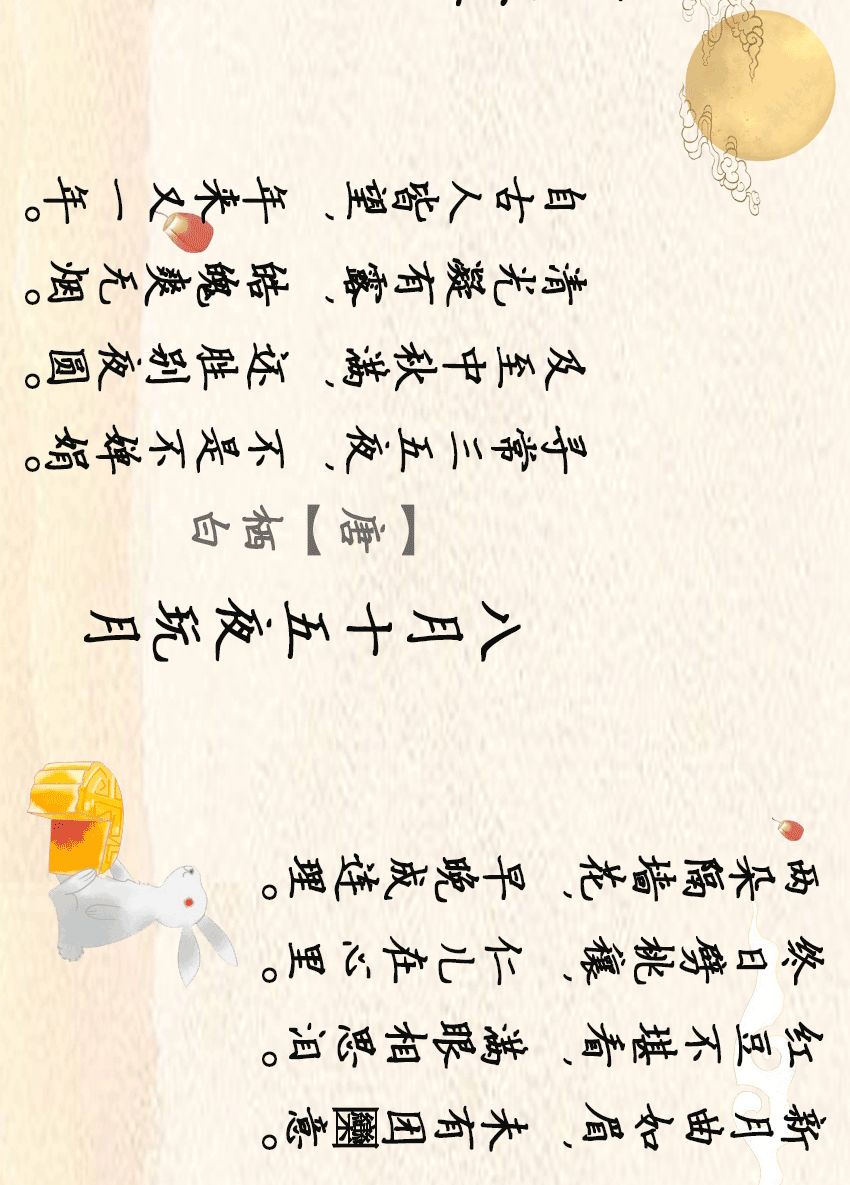 新月曲如眉，未有团圞意。
红豆不堪看，满眼相思泪。
终日劈桃穰，仁儿在心里。
两朵隔墙花，早晚成连理。
八月十五夜玩月
【唐】栖白
寻常三五夜，不是不婵娟。
及至中秋满，还胜别夜圓。
清光凝有露，皓魄爽无烟。
自古人皆望，年来又一年。